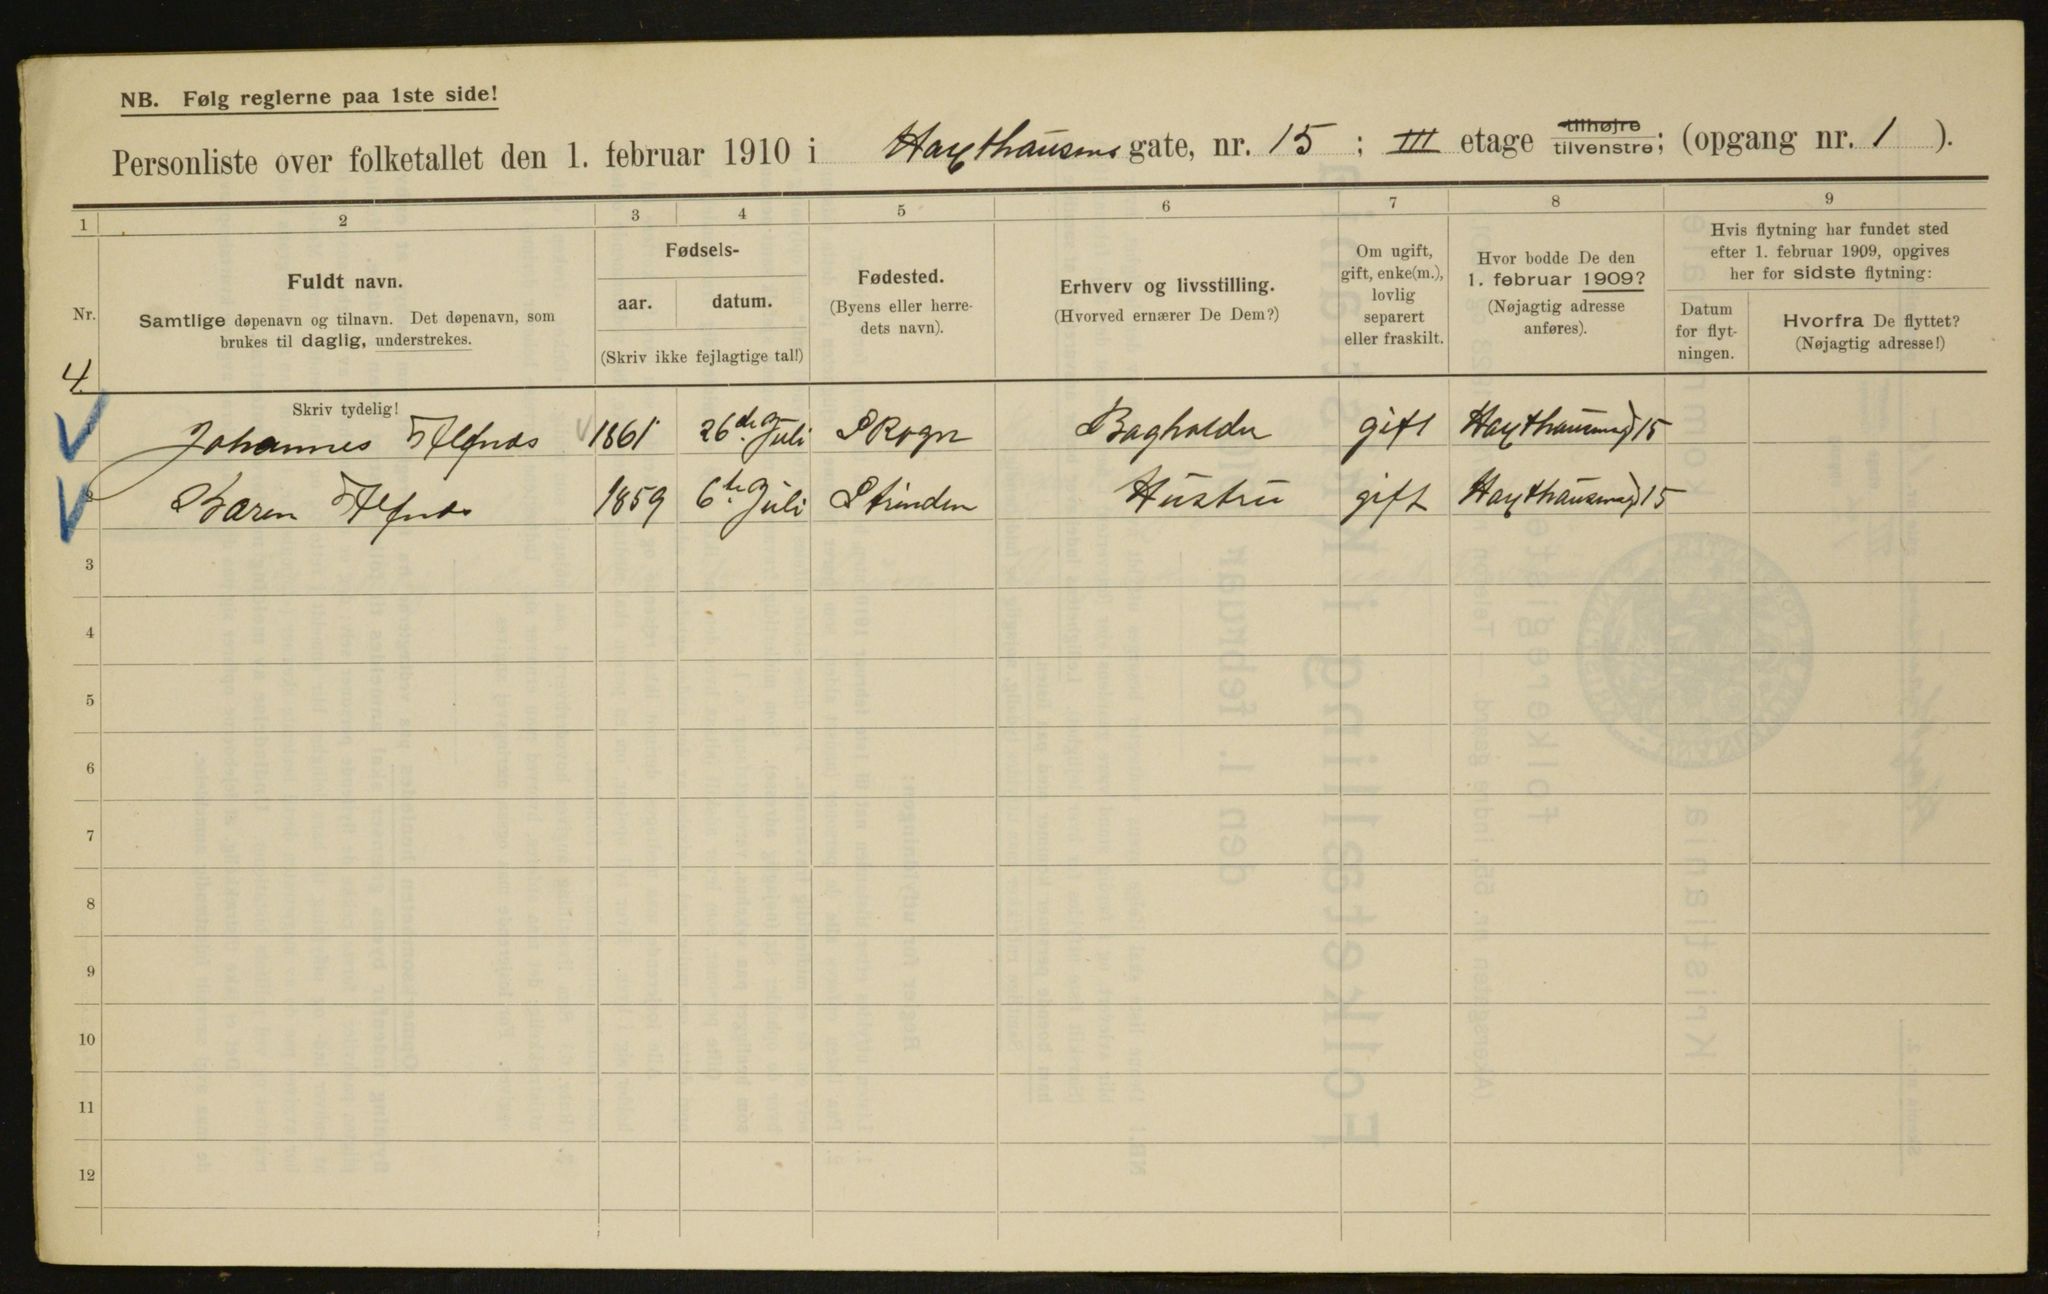 NB. Følg reglerne paa 1ste side!
Personliste over folketallet den 1. februar 1910 i Haxthausens gate, nr. 15; III etage tilhøjre tilvenstre; (opgang nr. 1).
1 2 3 4 5 6 7 8 9
Nr.
Fuldt navn.
Samtlige døpenavn og tilnavn. Det døpenavn, som
brukes til daglig, understrekes.
Fødsels-
aar. datum.
(Skriv ikke fejlagtige tal!)
Fødested.
(Byens eller herre-
dets navn).
Erhverv og livsstilling.
(Hvorved ernærer De Dem?)
Om ugift,
gift, enke(m.),
lovlig
separert
eller fraskilt.
Hvor bodde De den
1. februar 1909?
(Nøjagtig adresse
anføres).
Hvis flytning har fundet sted
efter 1. februar 1909, opgives
her for sidste flytning:
Datum
for flyt-
ningen.
Hvorfra De flyttet?
(Nøjagtig adresse!)
4.
Skriv tydelig!
Johannes 1861 26de Juli Skogn Bagholder gift Haxthausensgd 15
Karen 1859 6te Juli Strinden Hustru gift Haxthausensgd 15
3
4
5
6
7
8
9
10
11
12